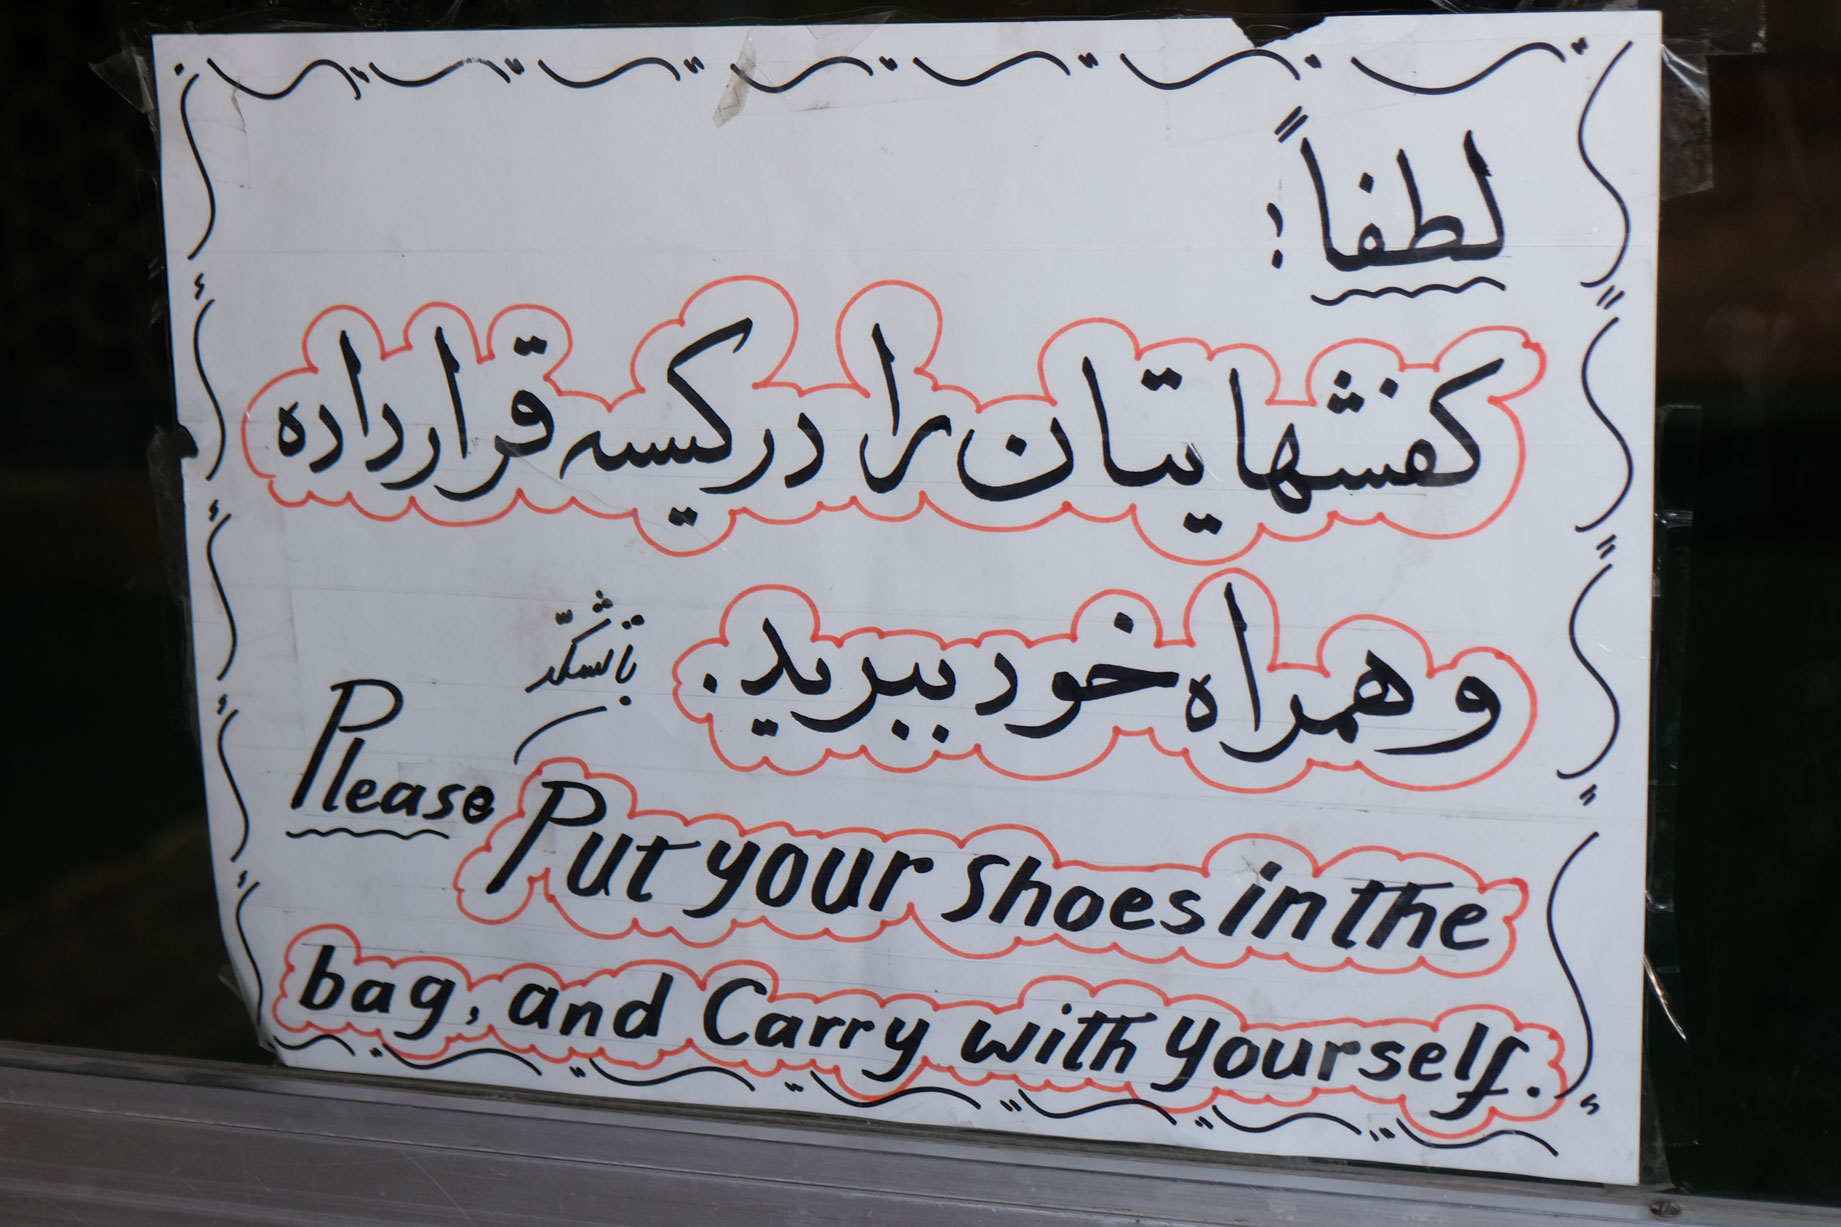 لطفاً:
کفشهایتان را در کیسه قرار داده
و همراه خود ببرید.
با تشکّر
Please Put your shoes in the
bag, and Carry with yourself.